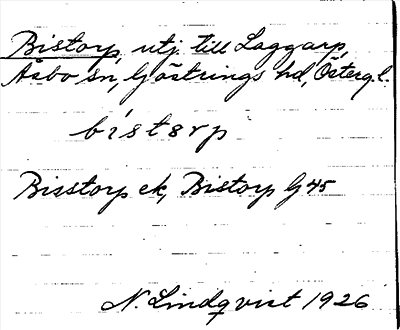 Bistorp, utj. till Laggarp,
Åsbo sn, Göstrings hd, Österg.l.
bístørp
Bisstorp ek, Bistorp G 45
N. Lindqvist 1926